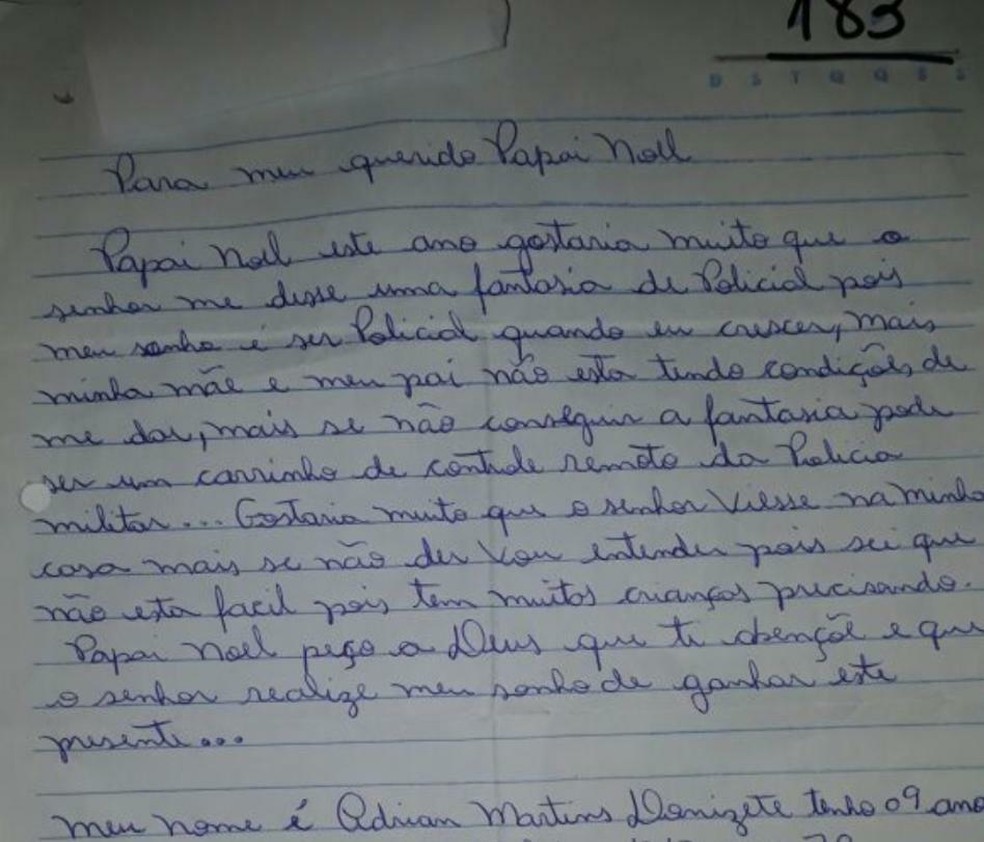 183
D S T Q Q S S
Para meu querido Papai Noel
Papai Noel este ano gostaria muito que o
senhor me desse uma fantasia de Policial pois
meu sonho é ser Policial quando eu crescer, mais
minha mãe e meu pai não esta tendo condições de
me dar, mais se não conseguir a fantasia pode
ser um carrinho de controle remoto da Policia
militar... Gostaria muito que o senhor Viesse na minha
casa mais se não der Vou entender pois sei que
não esta facil pois tem muitos crianças precisando.
Papai Noel peço a Deus que ti abençõe e que
o senhor realize meu sonho de ganhar este
presente...
Meu nome é Adrian Martins Donizete tenho 09 ano